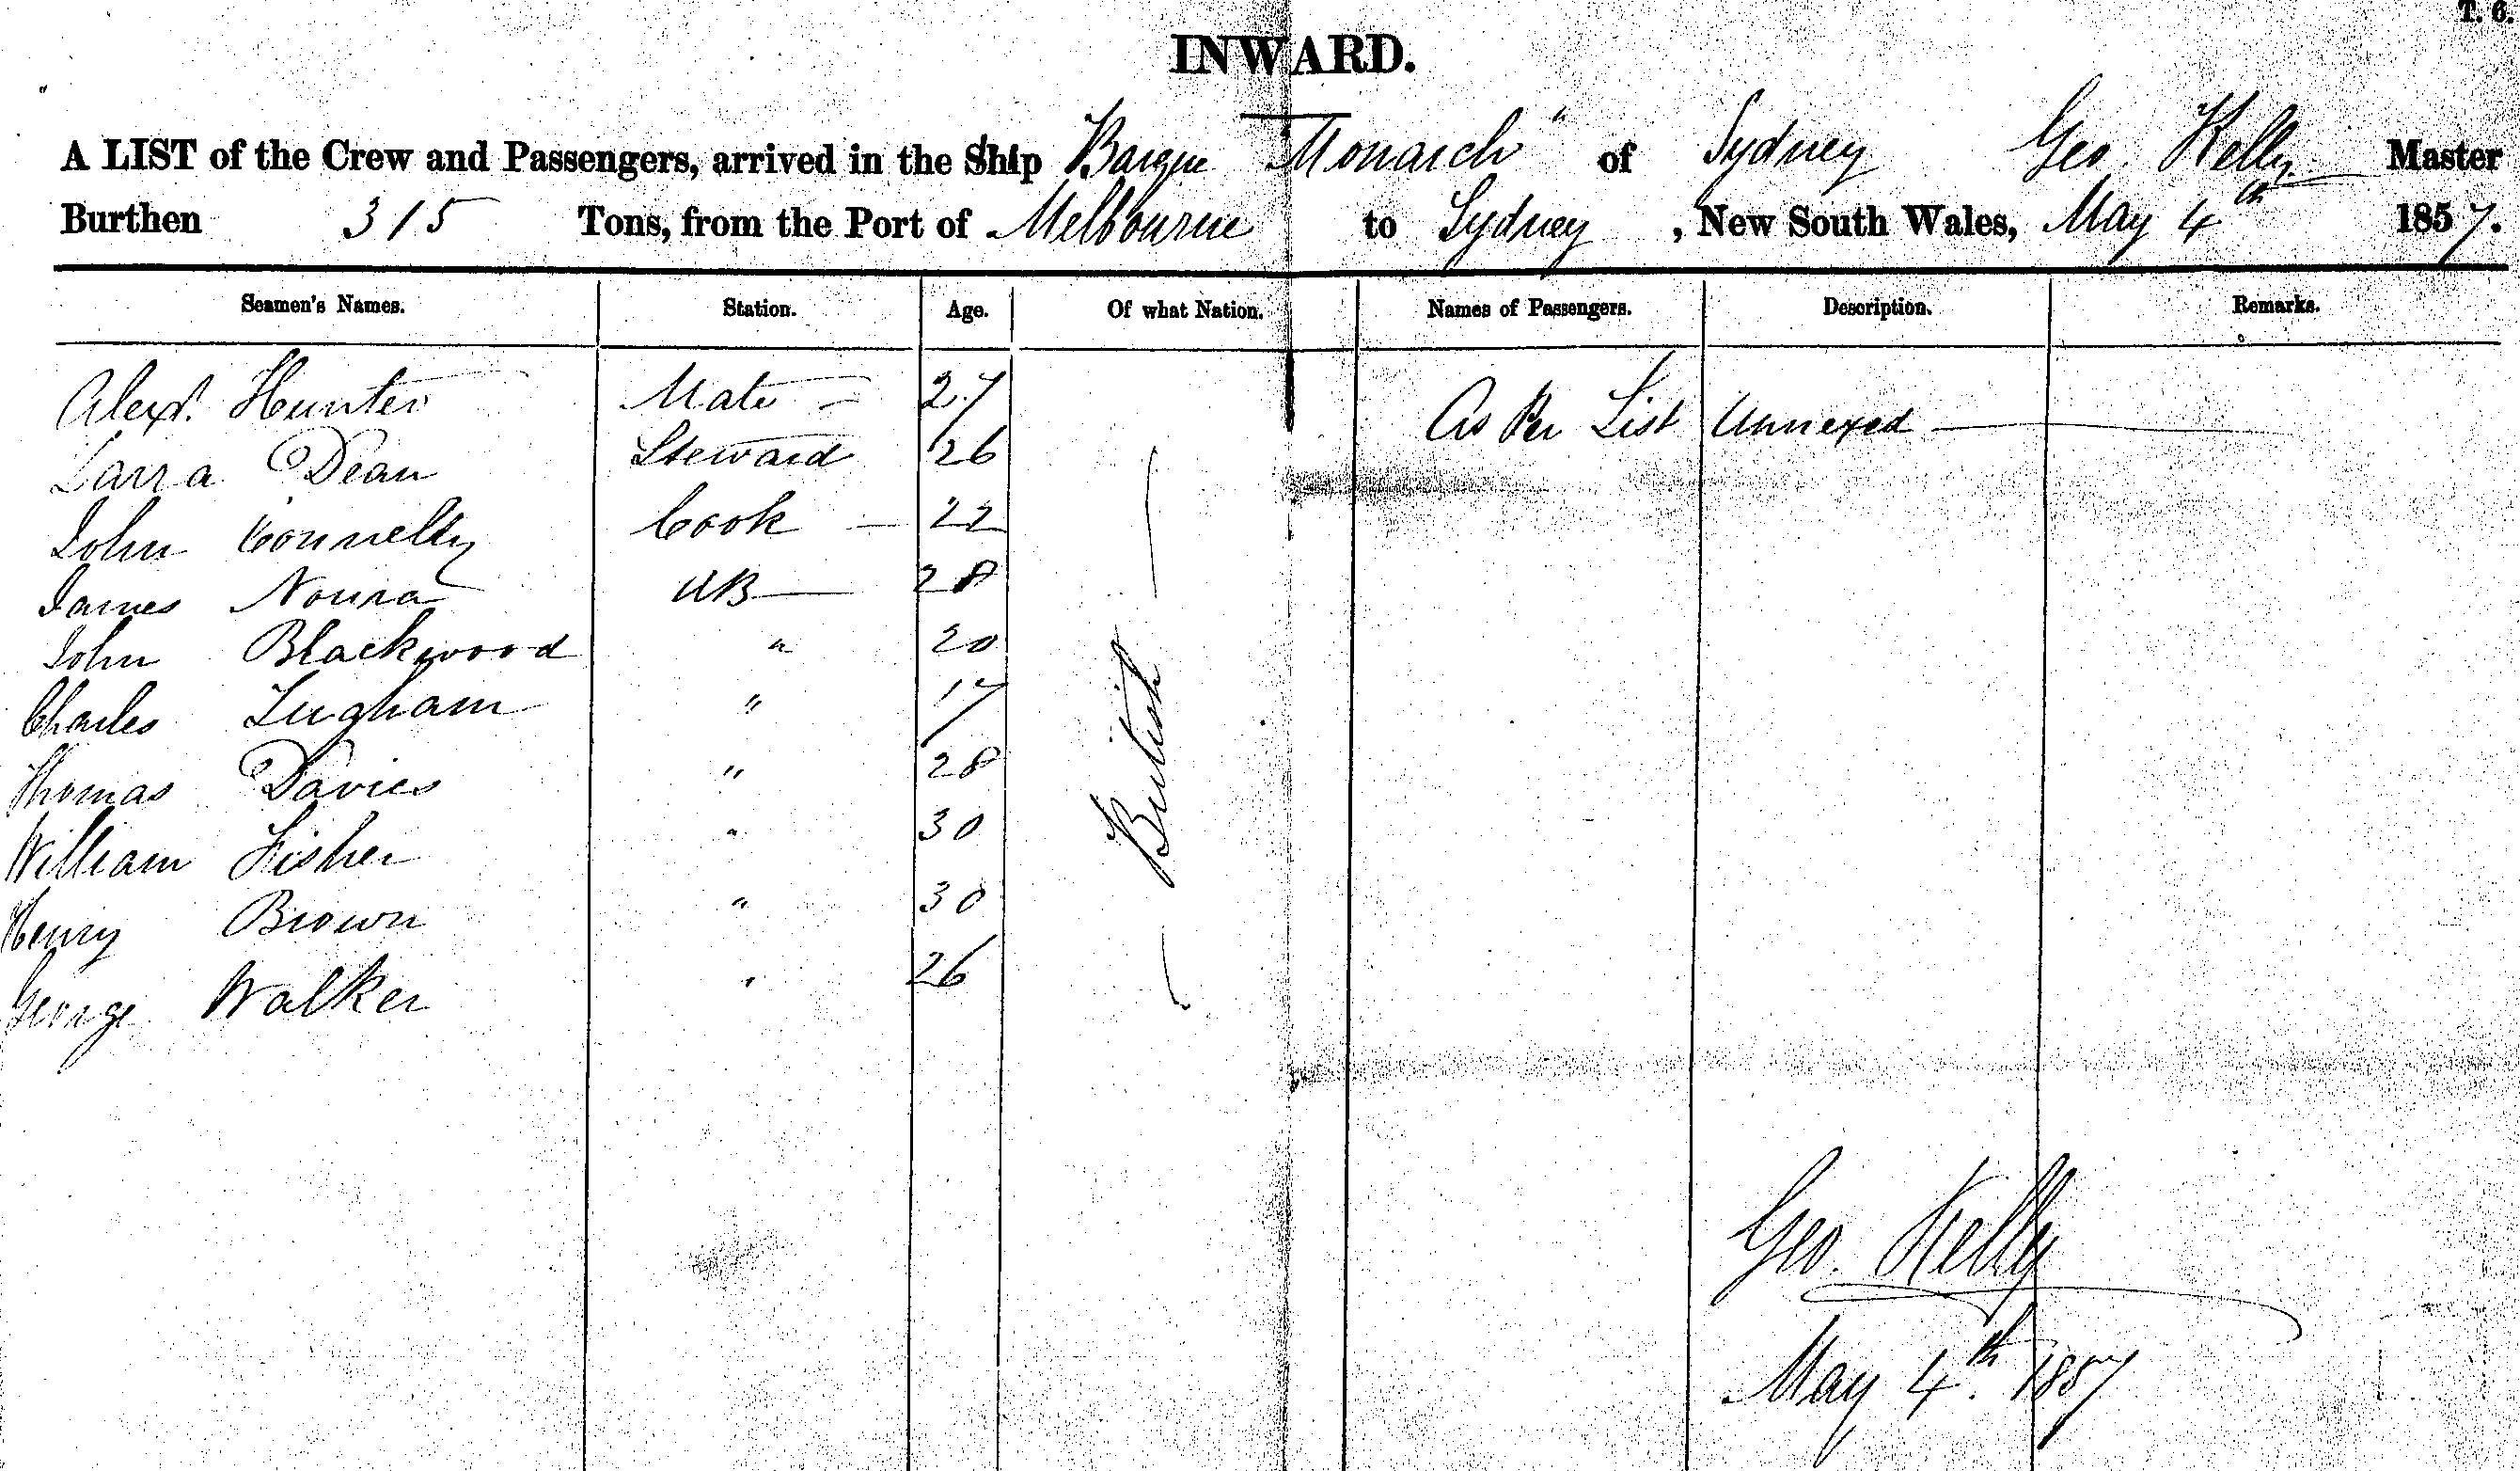 T. 6.
INWARD.
A LIST of the Crew and Passengers, arrived in the Ship Barque "Monarch" of Sydney Geo. Kelly Master
Burthen 315 Tons, from the Port of Melbourne to Sydney, New South Wales, May 4th 1857.
Seamen's Names. Station. Age. Of what Nation. Names of Passengers. Description. Remarks.
Alexr. Hunter Mate 27 As Per List Annexed
Dean Steward 26
John Connelly Cook 22
James AB 28
John Blackwood " 20
Charles " 17
Thomas Davies " 28
William Fisher " 30
Henry Brown " 30
George Walker " 26
British
Geo. Kelly
May 4th. 1857